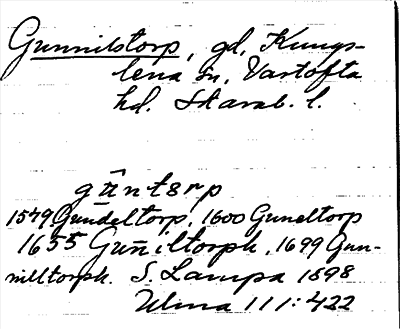 Gunnilstorp, gd, Kungs-
lena sn, Vartofta
hd. Skarab. l.
1549 Gundeltorp, 1600 Guneltorp
1655 Guñiltorph, 1699 Gun-
nilltorph. S. Lampa 1898
Ulma 111:422